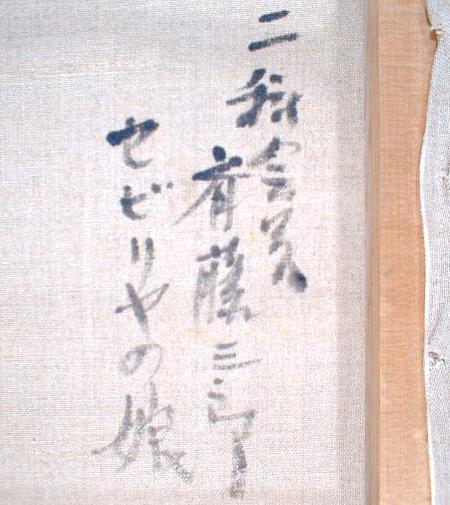 二科会員
斉藤三郎
セビリヤの娘